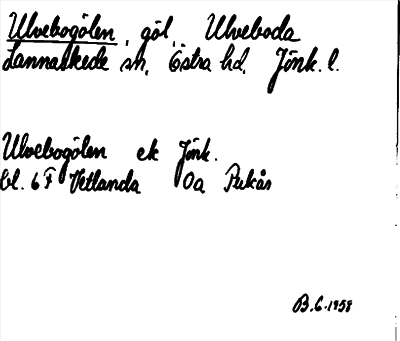 Ulvebogölen, göl, Ulveboda
Lannaskede sn, Östra hd, Jönk. l.
Ulvebogölen ek Jönk.
bl. 6 F Vetlanda 0a Pukås
B.G. 1958